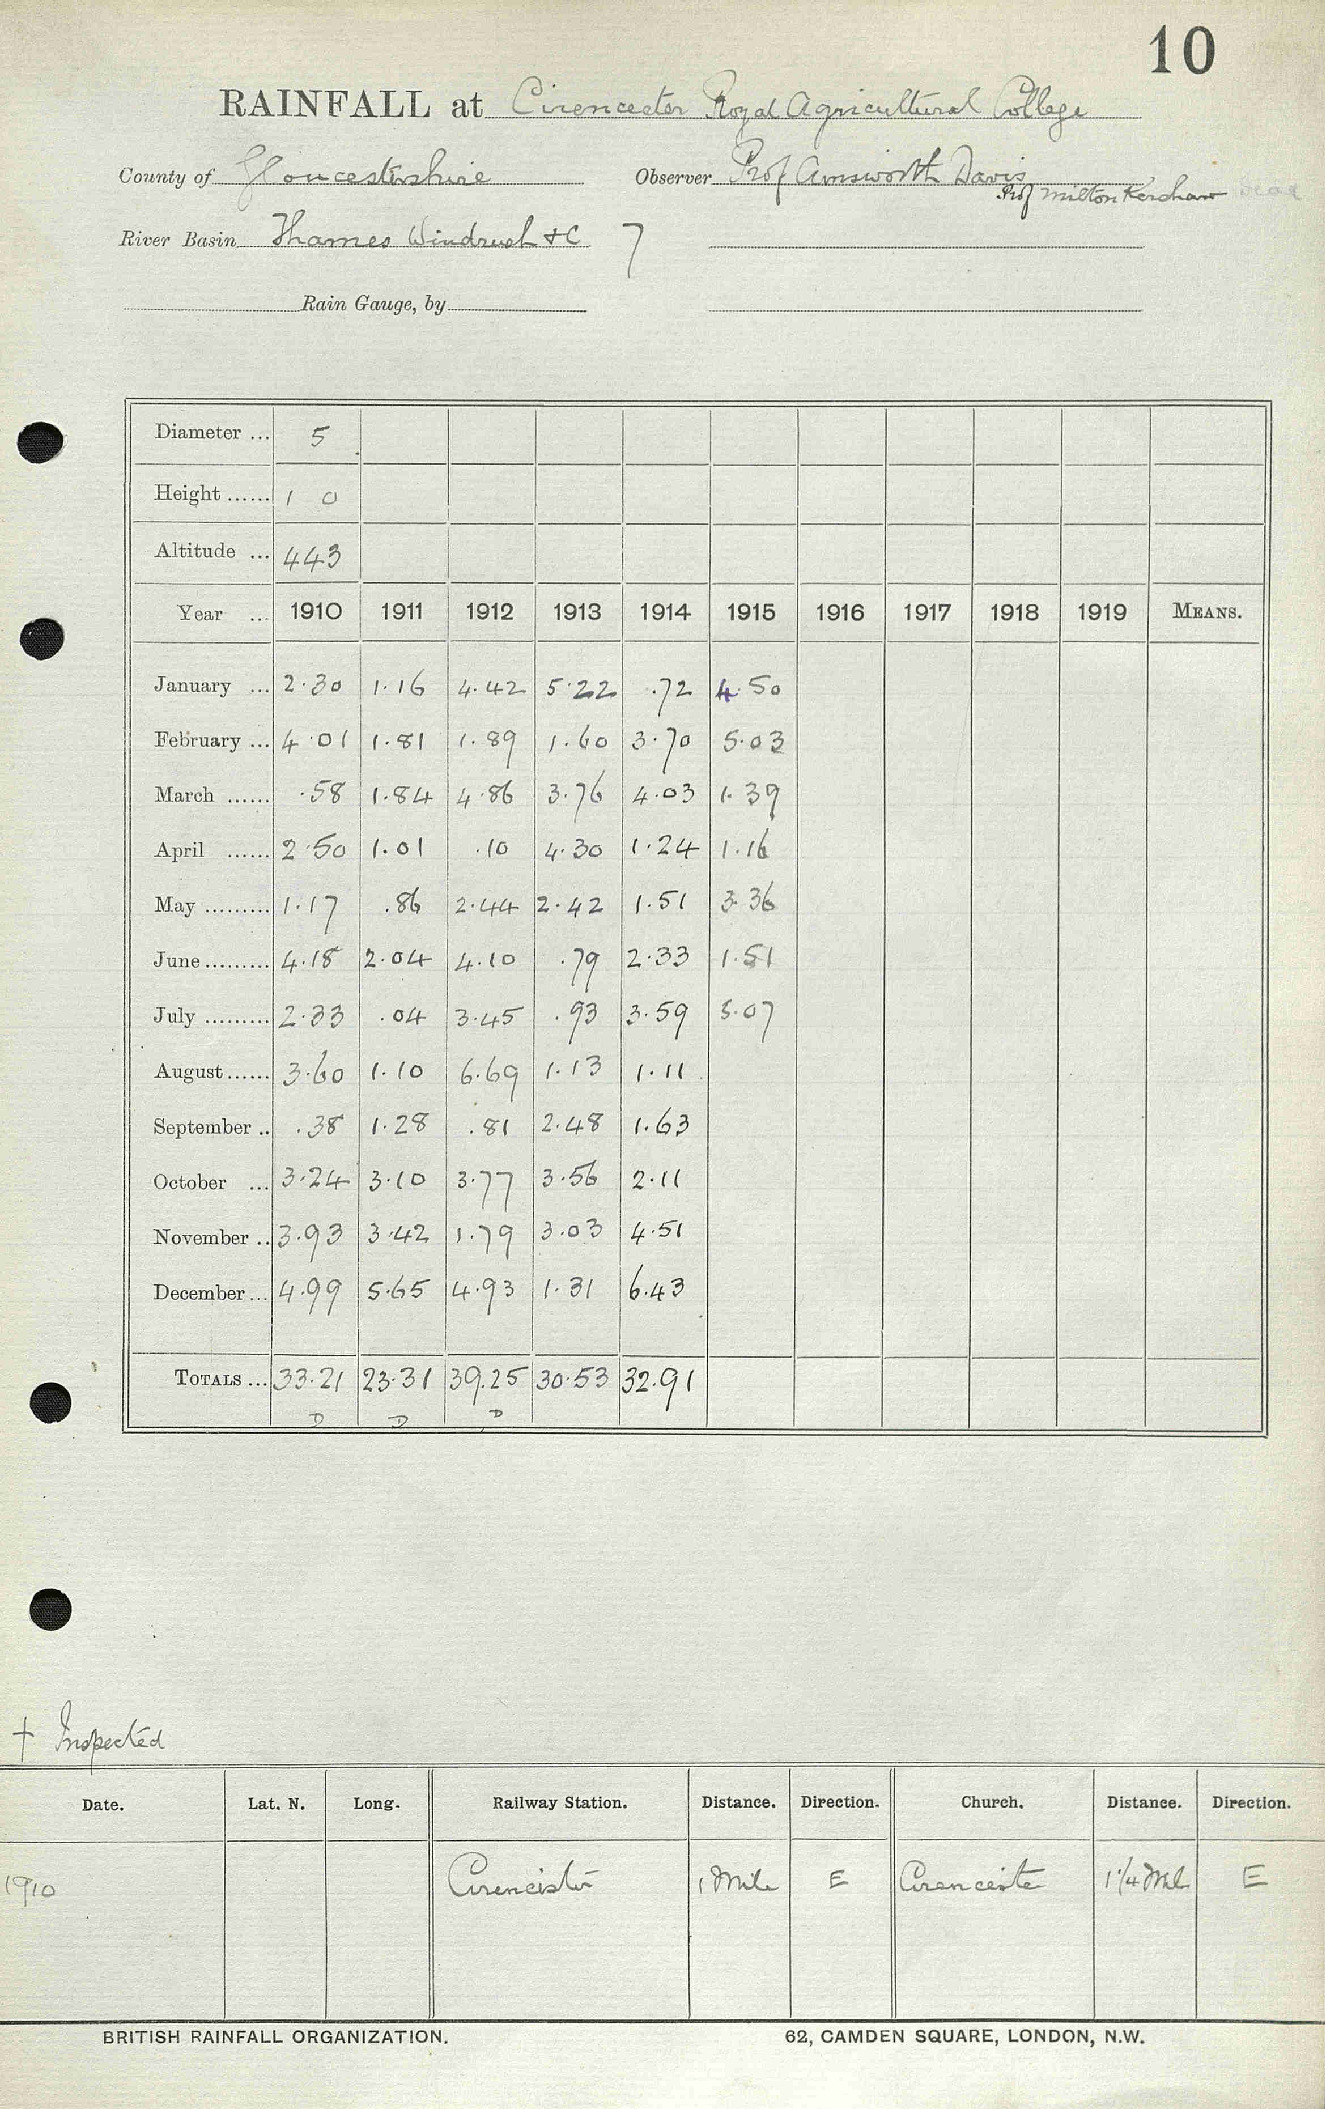 10
RAINFALL at Cirencester Royal Agricultural College
County of Gloucestershire Observer Prof Ainsworth Davis
Prof Milton Kershaw
River Basin Thames Windrush &c 7
Rain Gauge, by
Diameter ... 5
Height ...... 1 0
Altitude ... 443
Year ... 1910 1911 1912 1913 1914 1915 1916 1917 1918 1919 MEANS.
January ... 2.30 1.16 4.42 5.22 .72 4.50
February ... 4.01 1.81 1.89 1.60 3.70 5.03
March ...... .58 1.84 4.86 3.76 4.03 1.39
April ...... 2.50 1.01 .10 4.30 1.24 1.16
May ......... 1.17 .86 2.44 2.42 1.51 3.36
June ......... 4.18 2.04 4.10 .79 2.33 1.51
July ......... 2.33 .04 3.45 .93 3.59 5.07
August ...... 3.60 1.10 6.69 1.13 1.11
September .. .38 1.28 .81 2.48 1.63
October ... 3.24 3.10 3.77 3.56 2.11
November .. 3.93 3.42 1.79 3.03 4.51
December ... 4.99 5.65 4.93 1.31 6.43
TOTALS ... 33.21 23.31 39.25 30.53 32.91
D D D
† Inspected
Date. Lat. N. Long. Railway Station. Distance. Direction. Church. Distance. Direction.
1910 Cirencester 1 Mile E Cirencester 1 1/4 Ml E
BRITISH RAINFALL ORGANIZATION. 62, CAMDEN SQUARE, LONDON, N.W.